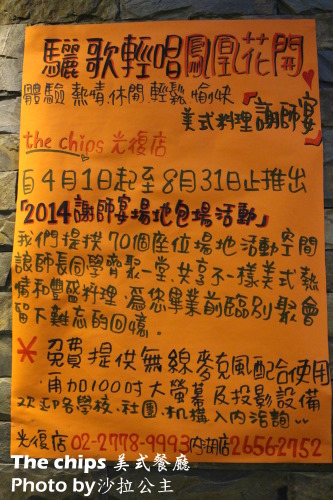 驪歌輕唱鳳凰花開
體驗熱情.休閒.輕鬆.愉快
美式料理『謝師宴』
the chips 光復店
自4月1日起至8月31日止推出
『2014謝師宴場地包場活動』
我們提供70個座位場地活動空間
讓師長同學齊聚一堂.共享不一樣美式熱
情和豐盛料理.為您畢業前臨別聚會
留下難忘的回憶。
*免費提供無線麥克風配合使用
.再加100吋大螢幕及投影設備
歡迎各學校.社團.機構入內洽詢..
光復店02-2778-9993內湖店26562752
The chips 美式餐廳
Photo by沙拉公主